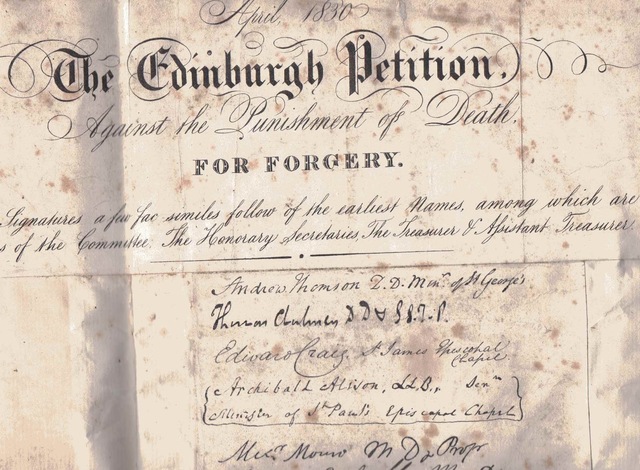 April, 1830
The Edinburgh Petition,
Against the Punishment of Death,
FOR FORGERY.
Signatures a few fac similes follow of the earliest Names, among which are
s of the Committee, The Honorary Secretaries, The Treasurer & Assistant Treasurer
Andrew Thomson D.D. Minr. of St George's
Thomas Chalmers D D & S.T.P.
Edward Craig, St James Episcopal
Chapel.
Archibald Alison, LL.B., Senr.
Minister of St Paul's Episcopal Chapel
Monro M D & Prof